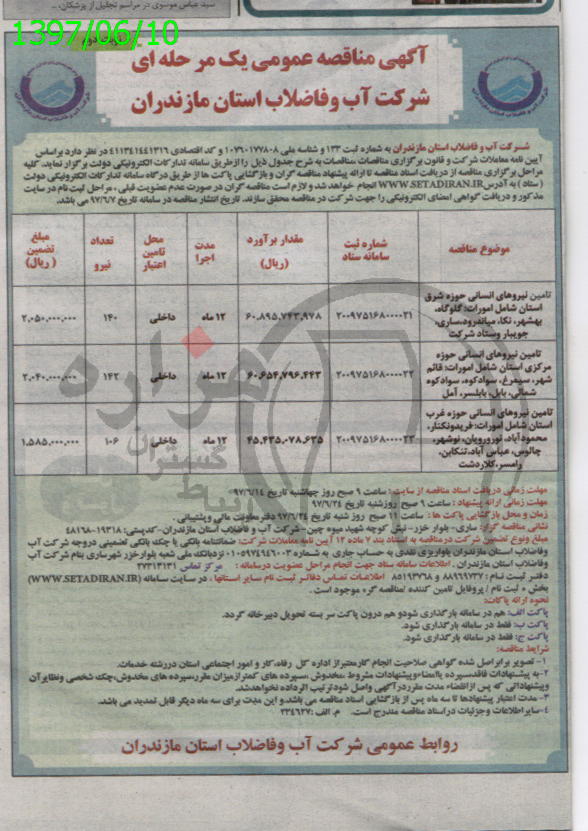 سید عباس موسوی در مراسم تجلیل از پزشکان،...
1397/06/10
نوبت دوم
آگهی مناقصه عمومی یک مرحله ای
شرکت آب وفاضلاب استان مازندران
شرکت آب و فاضلاب استان مازندران به شماره ثبت ۱۳۳ و شناسه ملی ۱۰۷۶۰۱۷۷۸۰۸ و کد اقتصادی ۴۱۱۳۴۱۴۴۱۳۱۶ در نظر دارد براساس
آیین نامه معاملات شرکت و قانون برگزاری مناقصات ،مناقصات به شرح جدول ذیل را ازطریق سامانه تدارکات الکترونیکی دولت برگزار نماید. کلیه
مراحل برگزاری مناقصه از دریافت اسناد مناقصه تا ارائه پیشنهاد مناقصه گران و بازگشایی پاکت ها از طریق درگاه سامانه تدارکات الکترونیکی دولت
( ستاد ) به آدرس WWW.SETADIRAN.IR انجام خواهد شد و لازم است مناقصه گران در صورت عدم عضویت قبلی ، مراحل ثبت نام در سایت
مذکور و دریافت گواهی امضای الکترونیکی را جهت شرکت در مناقصه محقق سازند. تاریخ انتشار مناقصه در سامانه تاریخ ۹۷/۶/۷ می باشد.
موضوع مناقصه شماره ثبت سامانه ستاد مقدار برآورد (ریال) مدت اجرا محل تامین اعتبار تعداد نیرو مبلغ تضمین ( ریال)
تامین نیروهای انسانی حوزه شرق
استان شامل امورات: گلوگاه،
بهشهر، نکا، میاندرود،ساری،
جویبار وستاد شرکت
۲۰۰۹۷۵۱۶۸۰۰۰۰۲۱ ۶۰.۸۹۵.۷۴۳.۹۷۸ ۱۲ ماه داخلی ۱۴۰ ۲.۰۵۰.۰۰۰.۰۰۰
تامین نیروهای انسانی حوزه
مرکزی استان شامل امورات: قائم
شهر، سیمرغ، سوادکوه، سوادکوه
شمالی، بابل، بابلسر، آمل
۲۰۰۹۷۵۱۶۸۰۰۰۰۲۲ ۶۰.۶۵۴.۷۹۶.۴۴۳ ۱۲ ماه داخلی ۱۴۲ ۲.۰۴۰.۰۰۰.۰۰۰
تامین نیروهای انسانی حوزه غرب
استان شامل امورات: فریدونکنار،
محمودآباد، نورورویان، نوشهر،
چالوس، عباس آباد،تنکابن،
رامسر،کلاردشت
۲۰۰۹۷۵۱۶۸۰۰۰۰۲۳ ۴۵.۴۳۵.۰۷۸.۶۳۵ ۱۲ ماه داخلی ۱۰۶ ۱.۵۸۵.۰۰۰.۰۰۰
مهلت زمانی دریافت اسناد مناقصه از سایت : ساعت ۹ صبح روز چهاشنبه تاریخ ۹۷/۶/۱۴
مهلت زمانی ارائه پیشنهاد : ساعت ۹ صبح روزشنبه تاریخ ۹۷/۶/۲۴
زمان و محل بازگشایی پاکت ها : ساعت ۱۱ صبح روز شنبه تاریخ ۹۷/۶/۲۴ دفتر معاونت مالی وپشتیبانی .
نشانی مناقصه گزار: ساری- بلوار خزر- نبش کوچه شهید میوه چین -شرکت آب و فاضلاب استان مازندران-کدپستی: ۱۹۳۱۸-۴۸۱۶۸
مبلغ ونوع تضمین شرکت درمناقصه به استناد بند ۷ ماده ۱۲ آیین نامه معاملات شرکت: ضمانتنامه بانکی یا چکد بانکی تضمینی دروجه شرکت آب
وفاضلاب استان مازندران یاواریزی نقدی به حساب جاری به شماره ۰۱۰۵۹۷۴۹۴۶۰۰۳ نزدبانکد ملی شعبه بلوارخزر شهرساری بنام شرکت آب
وفاضلاب استان مازندران . اطلاعات سامانه ستاد جهت انجام مراحل عضویت درسامانه : مرکز تماس ۲۷۳۱۳۱۳۱
دفتر ثبت نام : ۸۸۹۶۹۷۳۷ و ۸۵۱۹۳۷۶۸ اطلاعات تماس دفاتر ثبت نام سایر استانها ، در سایت سامانه (WWW.SETADIRAN.IR)
بخش « ثبت نام / پروفایل تامین کننده /مناقصه گر» موجود است .
نحوه ارائه پاکات:
پاکت الف: هم در سامانه بارگذاری شودو هم درون پاکت سر بسته تحویل دبیرخانه گردد.
پاکت ب: فقط در سامانه بارگذاری شود.
پاکت ج: فقط در سامانه بارگذاری شود.
شرایط مناقصه:
۱- تصویر برابراصل شده گواهی صلاحیت انجام کارمعتبراز اداره کل رفاه،کار و امور اجتماعی استان دررشته خدمات.
۲-به پیشنهادات فاقدسپرده یاامضاءوپیشنهادات مشروط ،مخدوش ،سپرده های کمترازمیزان مقرر،سپرده های مخدوش،چکد شخصی ونظایرآن
وپیشنهاداتی که پس ازانقضاء مدت مقرردرآگهی واصل شودترتیب اثرداده نخواهدشد.
۳- مدت اعتبار پیشنهادها تا سه ماه پس از بازگشایی اسناد مناقصه می باشد.و این مدت برای سه ماه دیگر قابل تمدید می باشد.
۴-سایراطلاعات وجزئیات دراسناد مناقصه مندرج است. م. الف :۲۳۴۶۲۷
روابط عمومی شرکت آب وفاضلاب استان مازندران